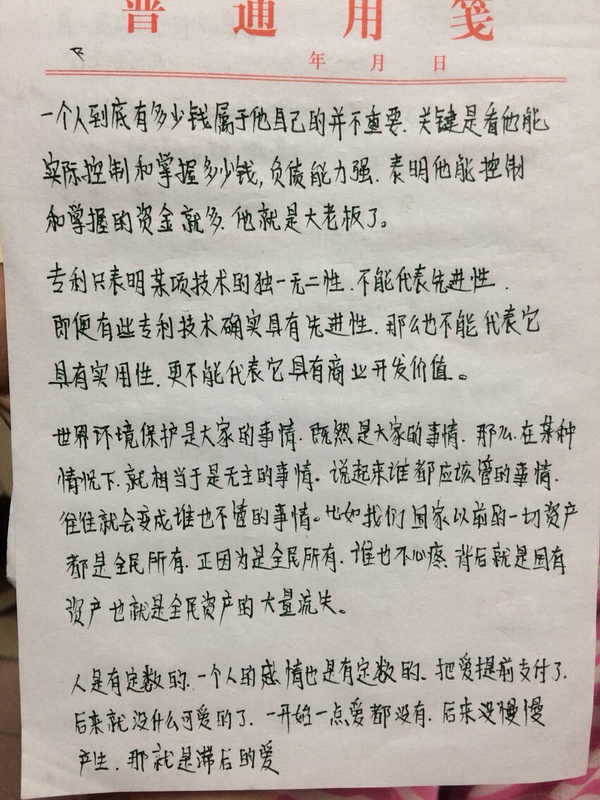 普通用笺
年 月 日
一个人到底有多少钱属于他自己的并不重要.关键是看他能
实际控制和掌握多少钱,负债能力强.表明他能控制
和掌握的资金就多.他就是大老板了。
专利只表明某项技术的独一无二性.不能代表先进性.
即便有些专利技术确实具有先进性.那么也不能代表它
具有实用性.更不能代表它具有商业开发价值。
世界环境保护是大家的事情.既然是大家的事情.那么.在某种
情况下.就相当于是无主的事情。说起来谁都应该管的事情.
往往就会变成谁也不管的事情。比如我们国家以前的一切资产
都是全民所有.正因为是全民所有.谁也不心疼.背后就是国有
资产也就是全民资产的大量流失。
人是有定数的.一个人的感情也是有定数的.把爱提前支付了.
后来就没什么可爱的了.一开始一点爱都没有.后来没慢慢
产生.那就是滞后的爱